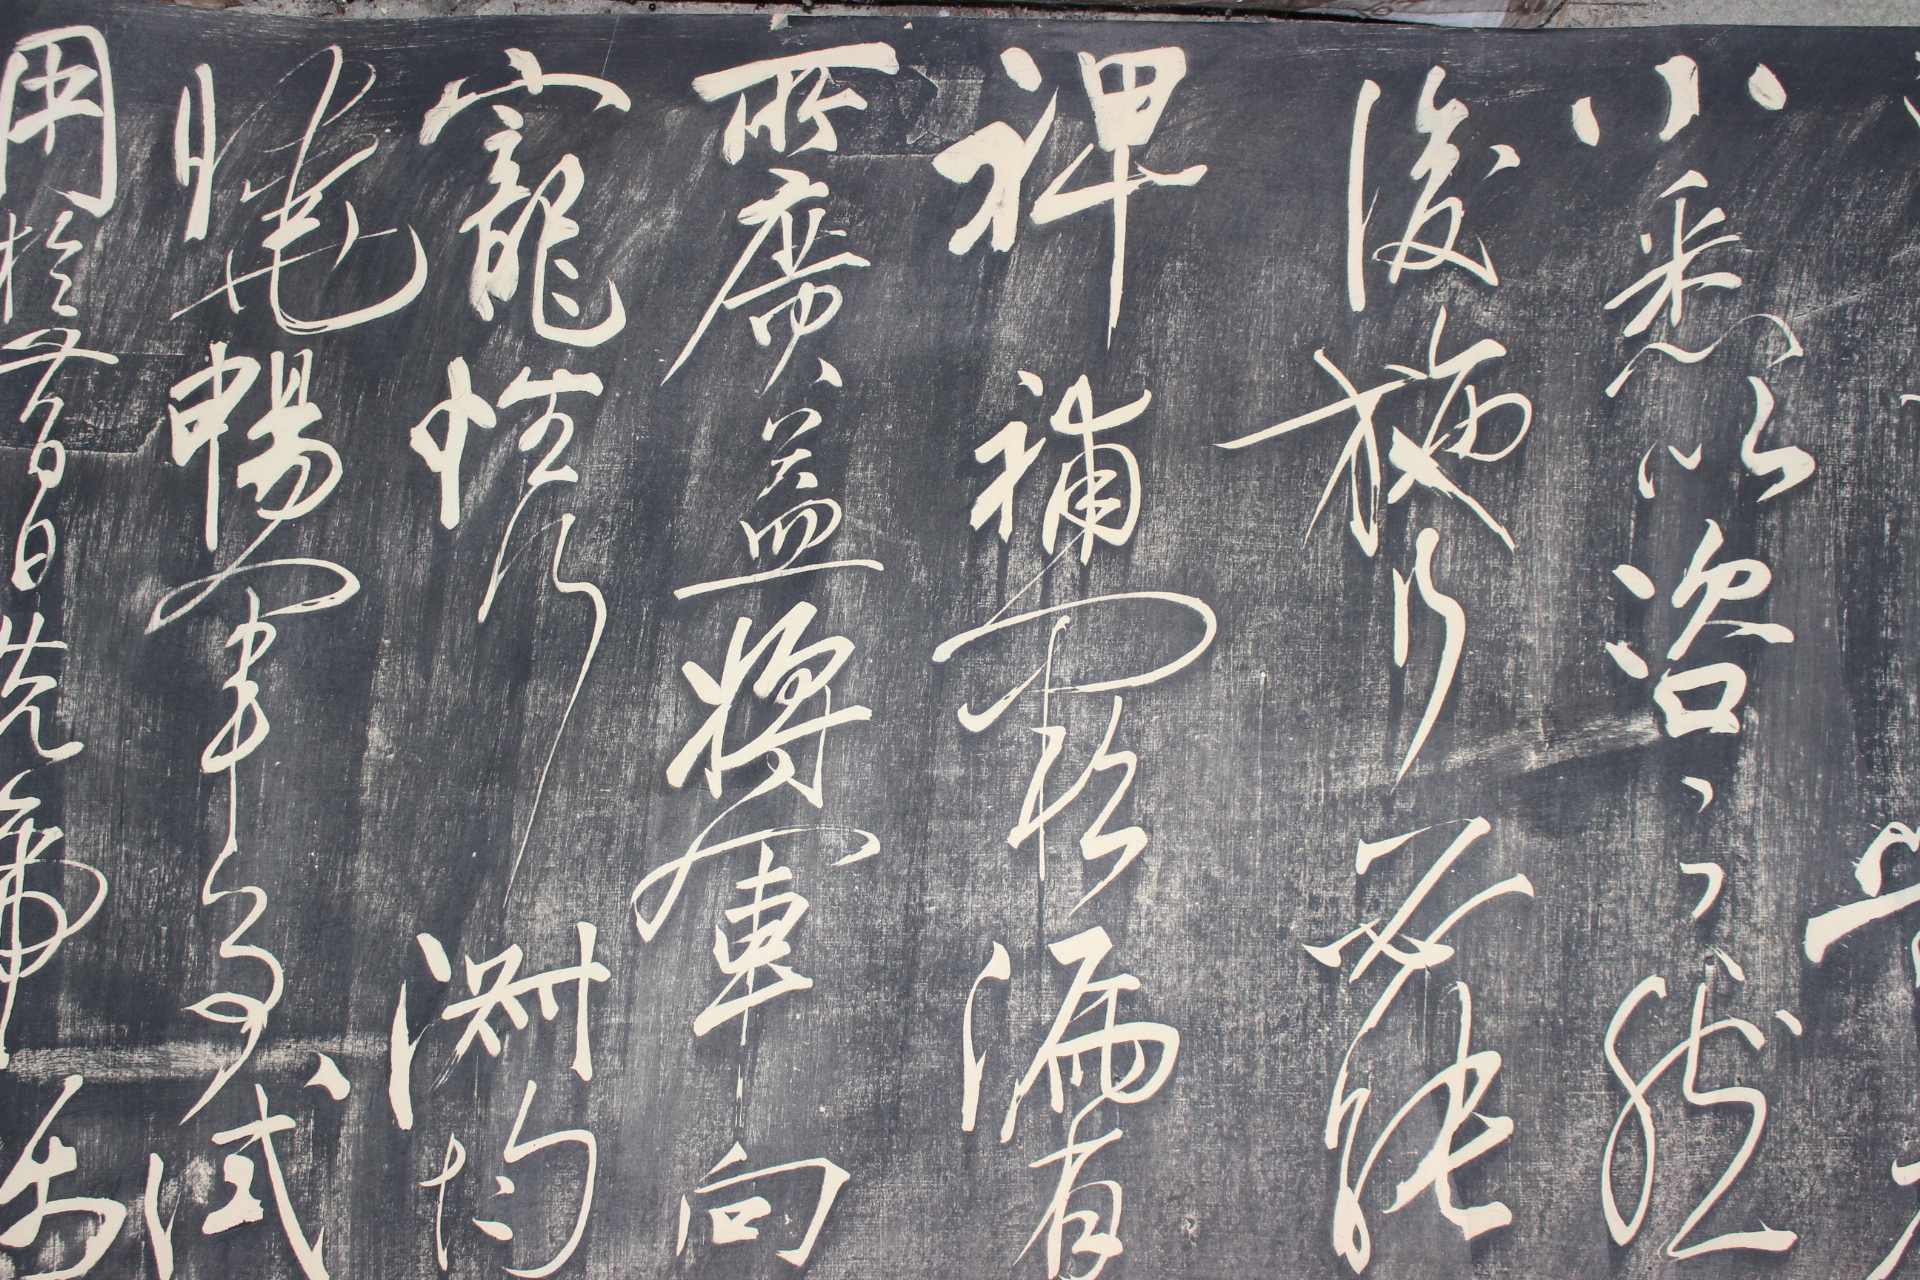 小悉以咨之然
後施行必能
裨補闕漏有
所廣益將軍向
寵性行淑均
曉暢軍事試
用於昔日先帝稱